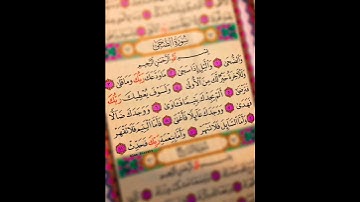 سُورَةُ الضُّحَىٰ
بِسْمِ اللَّهِ الرَّحْمَٰنِ الرَّحِيمِ
وَالضُّحَىٰ وَاللَّيْلِ إِذَا سَجَىٰ مَا وَدَّعَكَ رَبُّكَ وَمَا قَلَىٰ
وَلَلْآخِرَةُ خَيْرٌ لَّكَ مِنَ الْأُولَىٰ وَلَسَوْفَ يُعْطِيكَ رَبُّكَ
فَتَرْضَىٰ أَلَمْ يَجِدْكَ يَتِيمًا فَآوَىٰ وَوَجَدَكَ ضَالًّا
فَهَدَىٰ وَوَجَدَكَ عَائِلًا فَأَغْنَىٰ فَأَمَّا الْيَتِيمَ فَلَا تَقْهَرْ
وَأَمَّا السَّائِلَ فَلَا تَنْهَرْ وَأَمَّا بِنِعْمَةِ رَبِّكَ فَحَدِّثْ